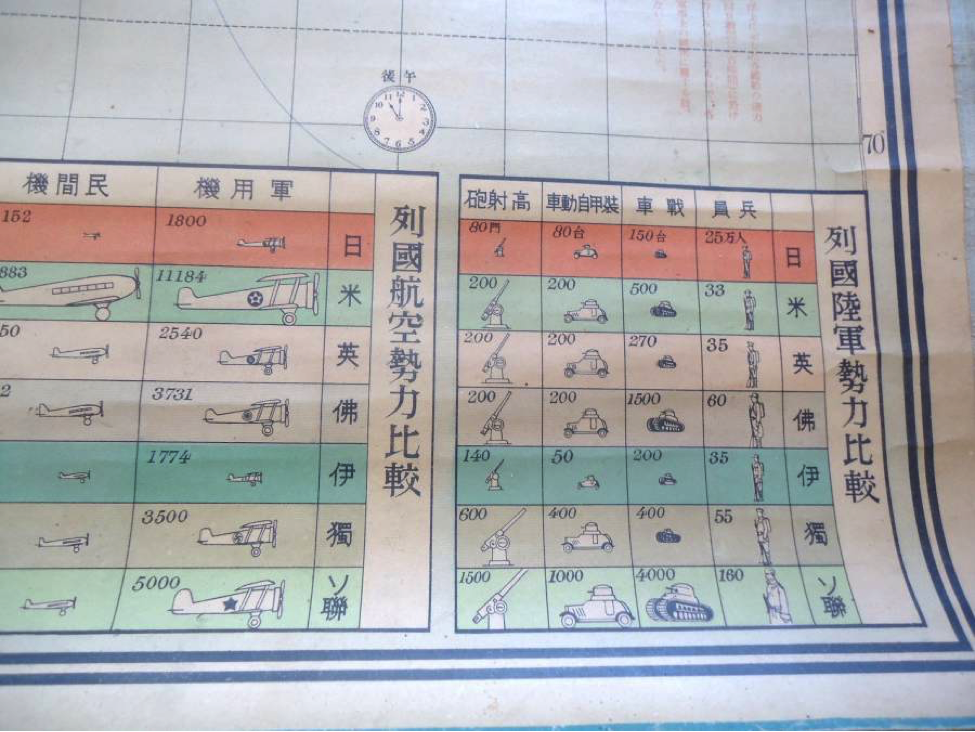 後午
12
1
2
3
4
5
6
7
8
9
10
11
70°
列國航空勢力比較
機間民 機用軍
152 1800 日
883 11184 米
50 2540 英
2 3731 佛
1774 伊
3500 獨
5000 ソ聯
列國陸軍勢力比較
砲射高 車動自甲裝 車戰 員兵
80門 80台 150台 25万人 日
200 200 500 33 米
200 200 270 35 英
200 200 1500 60 佛
140 50 200 35 伊
600 400 400 55 獨
1500 1000 4000 160 ソ聯